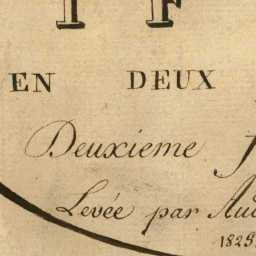 I F
EN DEUX
Deuxieme
Levée par
1825